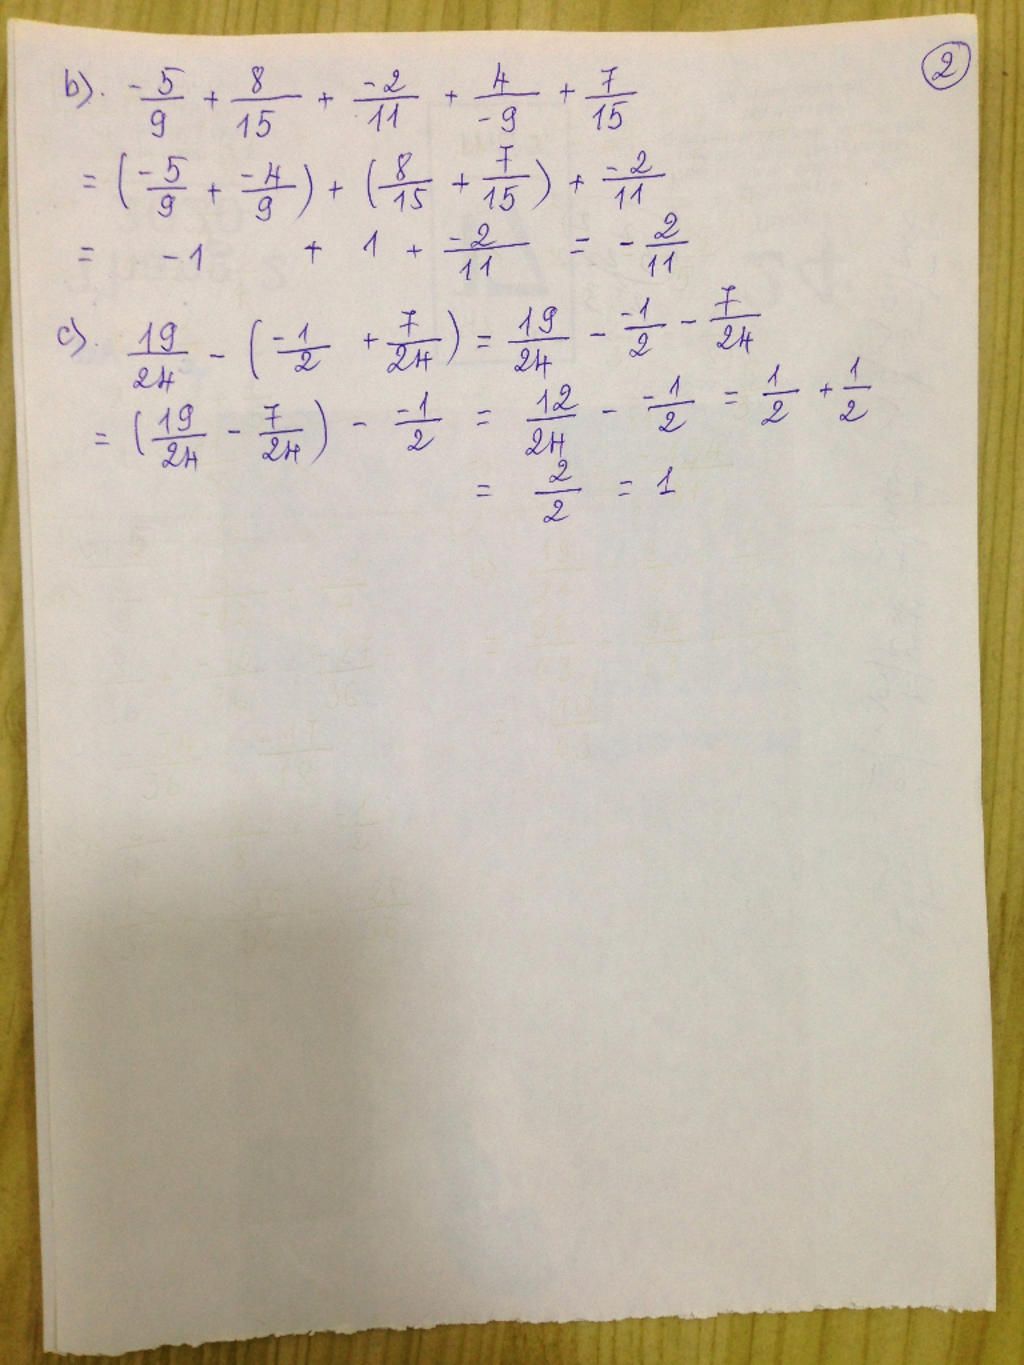 ②
b). -5/9 + 8/15 + -2/11 + 4/-9 + 7/15
= (-5/9 + -4/9) + (8/15 + 7/15) + -2/11
= -1 + 1 + -2/11 = -2/11
c). 19/24 - (-1/2 + 7/24) = 19/24 - -1/2 - 7/24
= (19/24 - 7/24) - -1/2 = 12/24 - -1/2 = 1/2 + 1/2
= 2/2 = 1